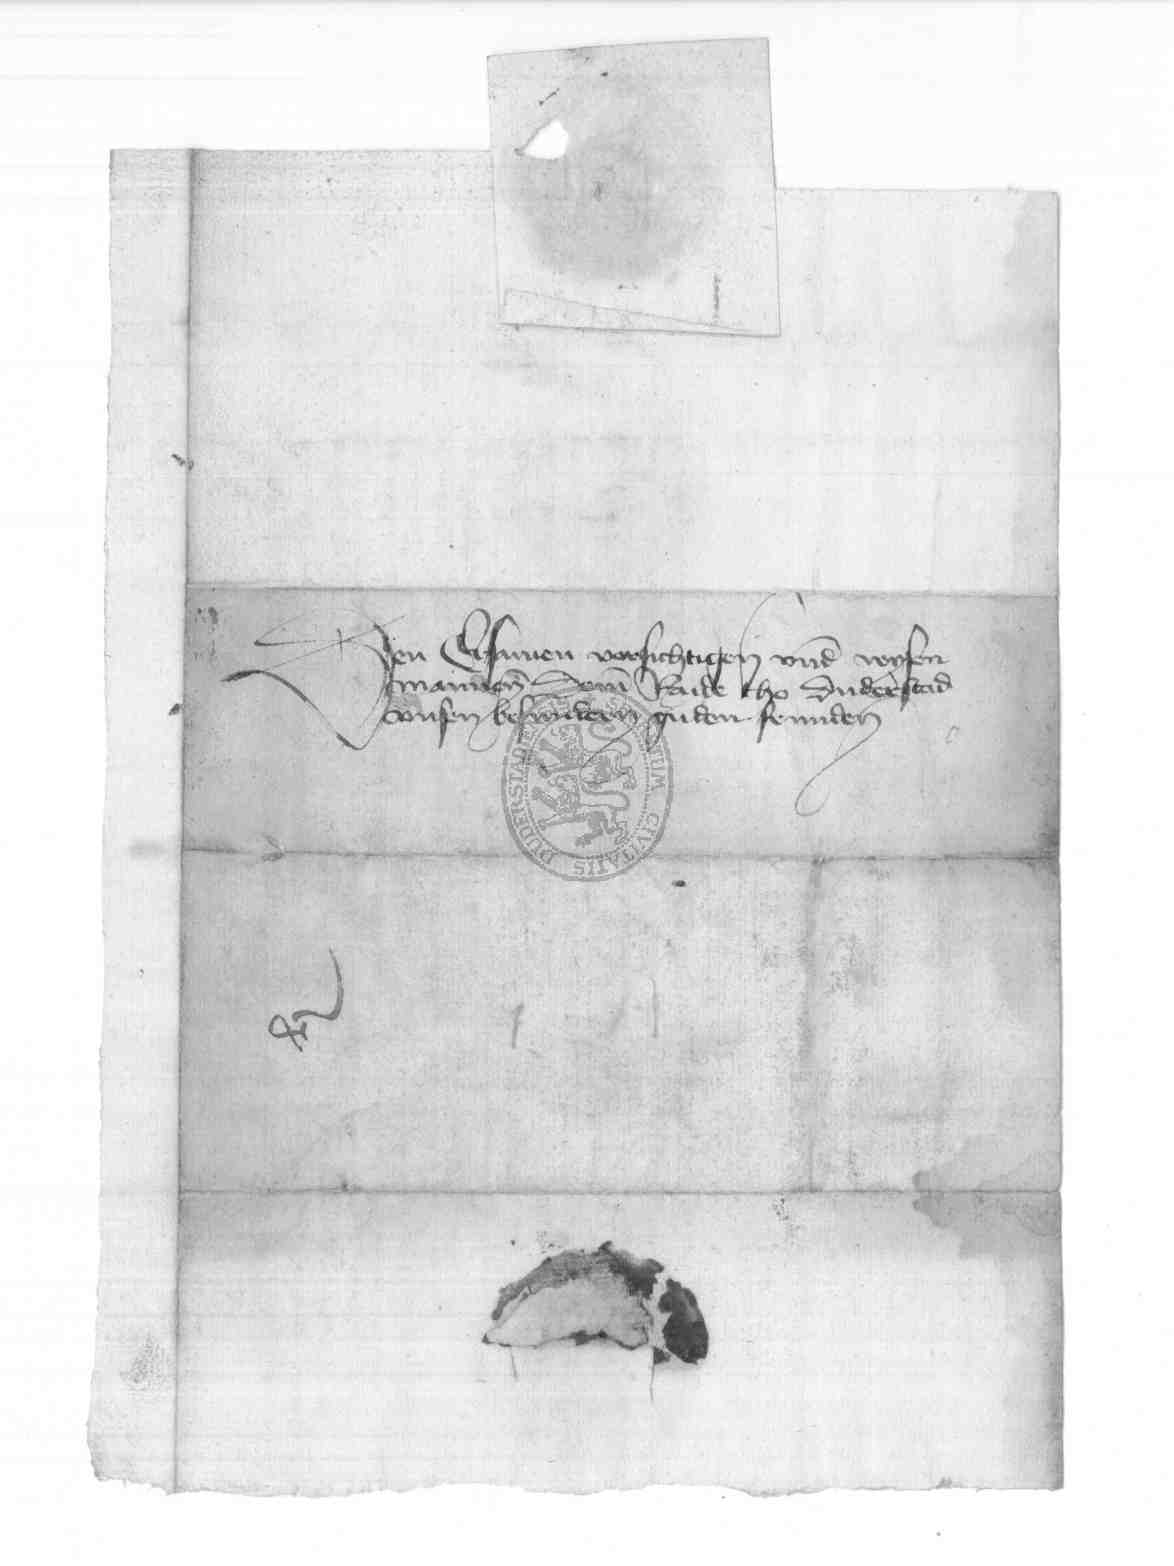 Den Ersamen vorsichtigen vnd wysen
mannen dem Rade tho Duderstad
vnsen besundern guden frunden
DUDERSTADENSIS CIVITATIS